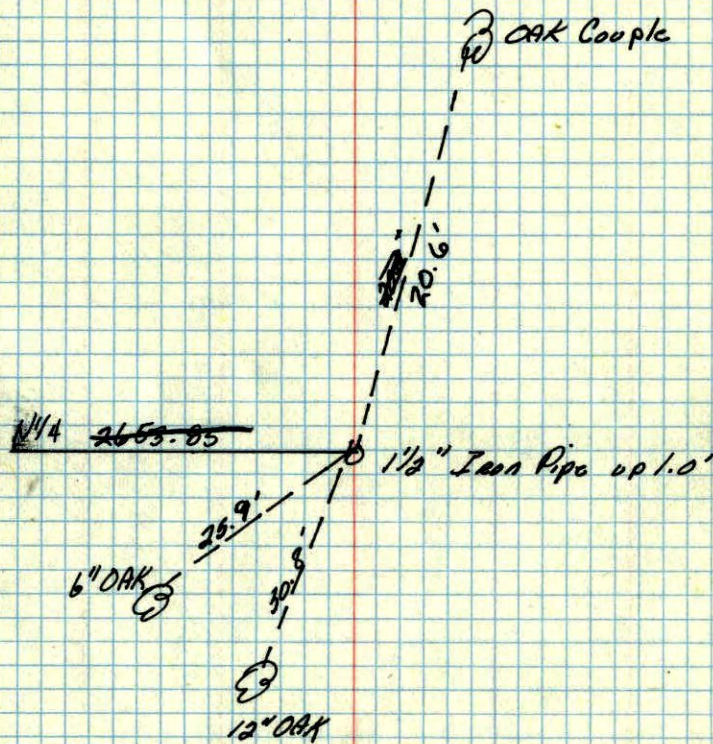 OAK Couple
20.6'
N1/4 2653.85
1 1/2" Iron Pipe up 1.0'
25.9'
6" OAK
30.8'
12" OAK